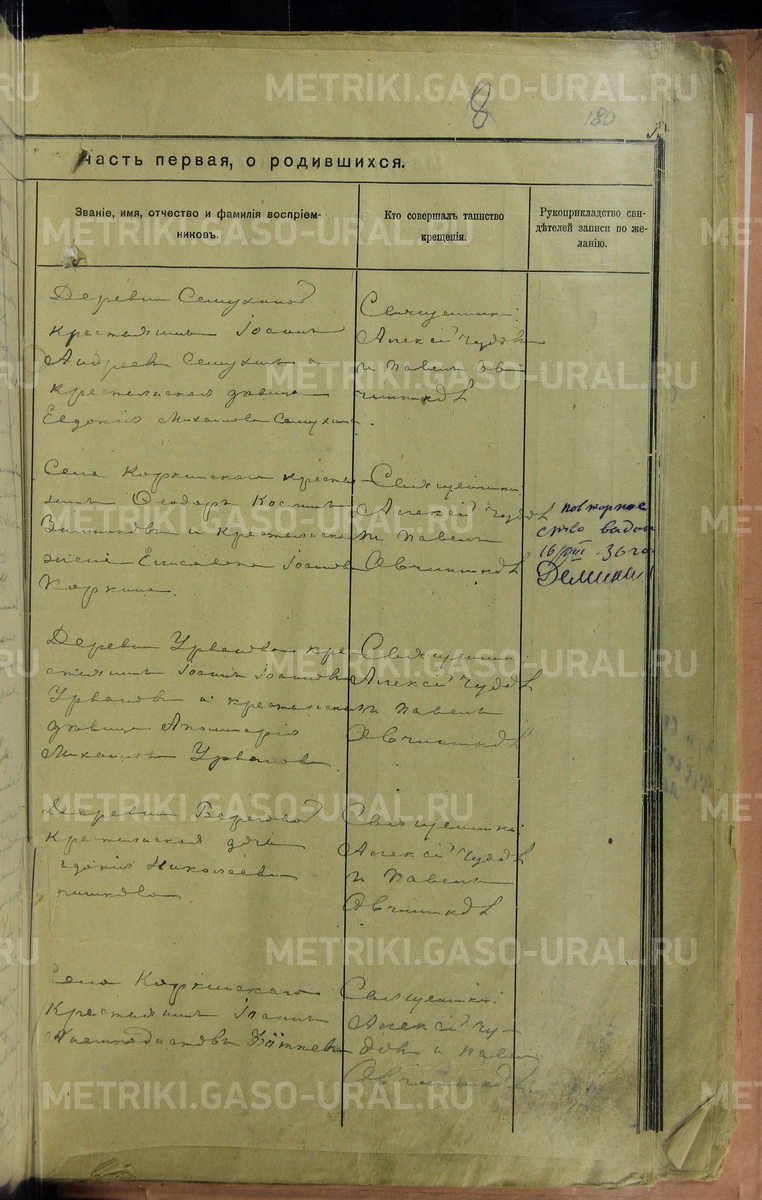 8
180
часть первая, о родившихся.
Званіе, имя, отчество и фамилія воспріем-
никовъ.
Кто совершалъ таинство
крещенія.
Рукоприкладство сви-
дѣтелей записи по же-
ланію.
Деревни
крестьянинъ Іоаннъ
Андреевъ Семухинъ и
крестьянская дѣвица
Евдокія Михаилова Семухина.
Священники:
Алексій Чудовъ
и Павелъ Ов-
чинниковъ
Села Коркинскаго крестья-
нинъ Ѳеодоръ Косминъ
и крестьянская
жена Елисавета Іоаннова
Коркина.
Священники:
Алексій Чудовъ
и Павелъ
Овчинниковъ
повторное
16/VIII-36 го
Деревни Урванова кре-
стьянинъ Іоаннъ Іоанновъ
Урвановъ и крестьянская
дѣвица Аполинарія
Михаилова Урванова
Священники
Алексій Чудовъ
и Павелъ
Овчинниковъ
Деревни Береговой
крестьянская дочь
Николаева
Священники:
Алексій Чудовъ
и Павелъ
Овчинниковъ
Села Коркинскаго
крестьянинъ Іоаннъ
Священники:
Алексій Чу-
довъ и Павелъ
Овчинниковъ
METRIKI.GASO-URAL.RU